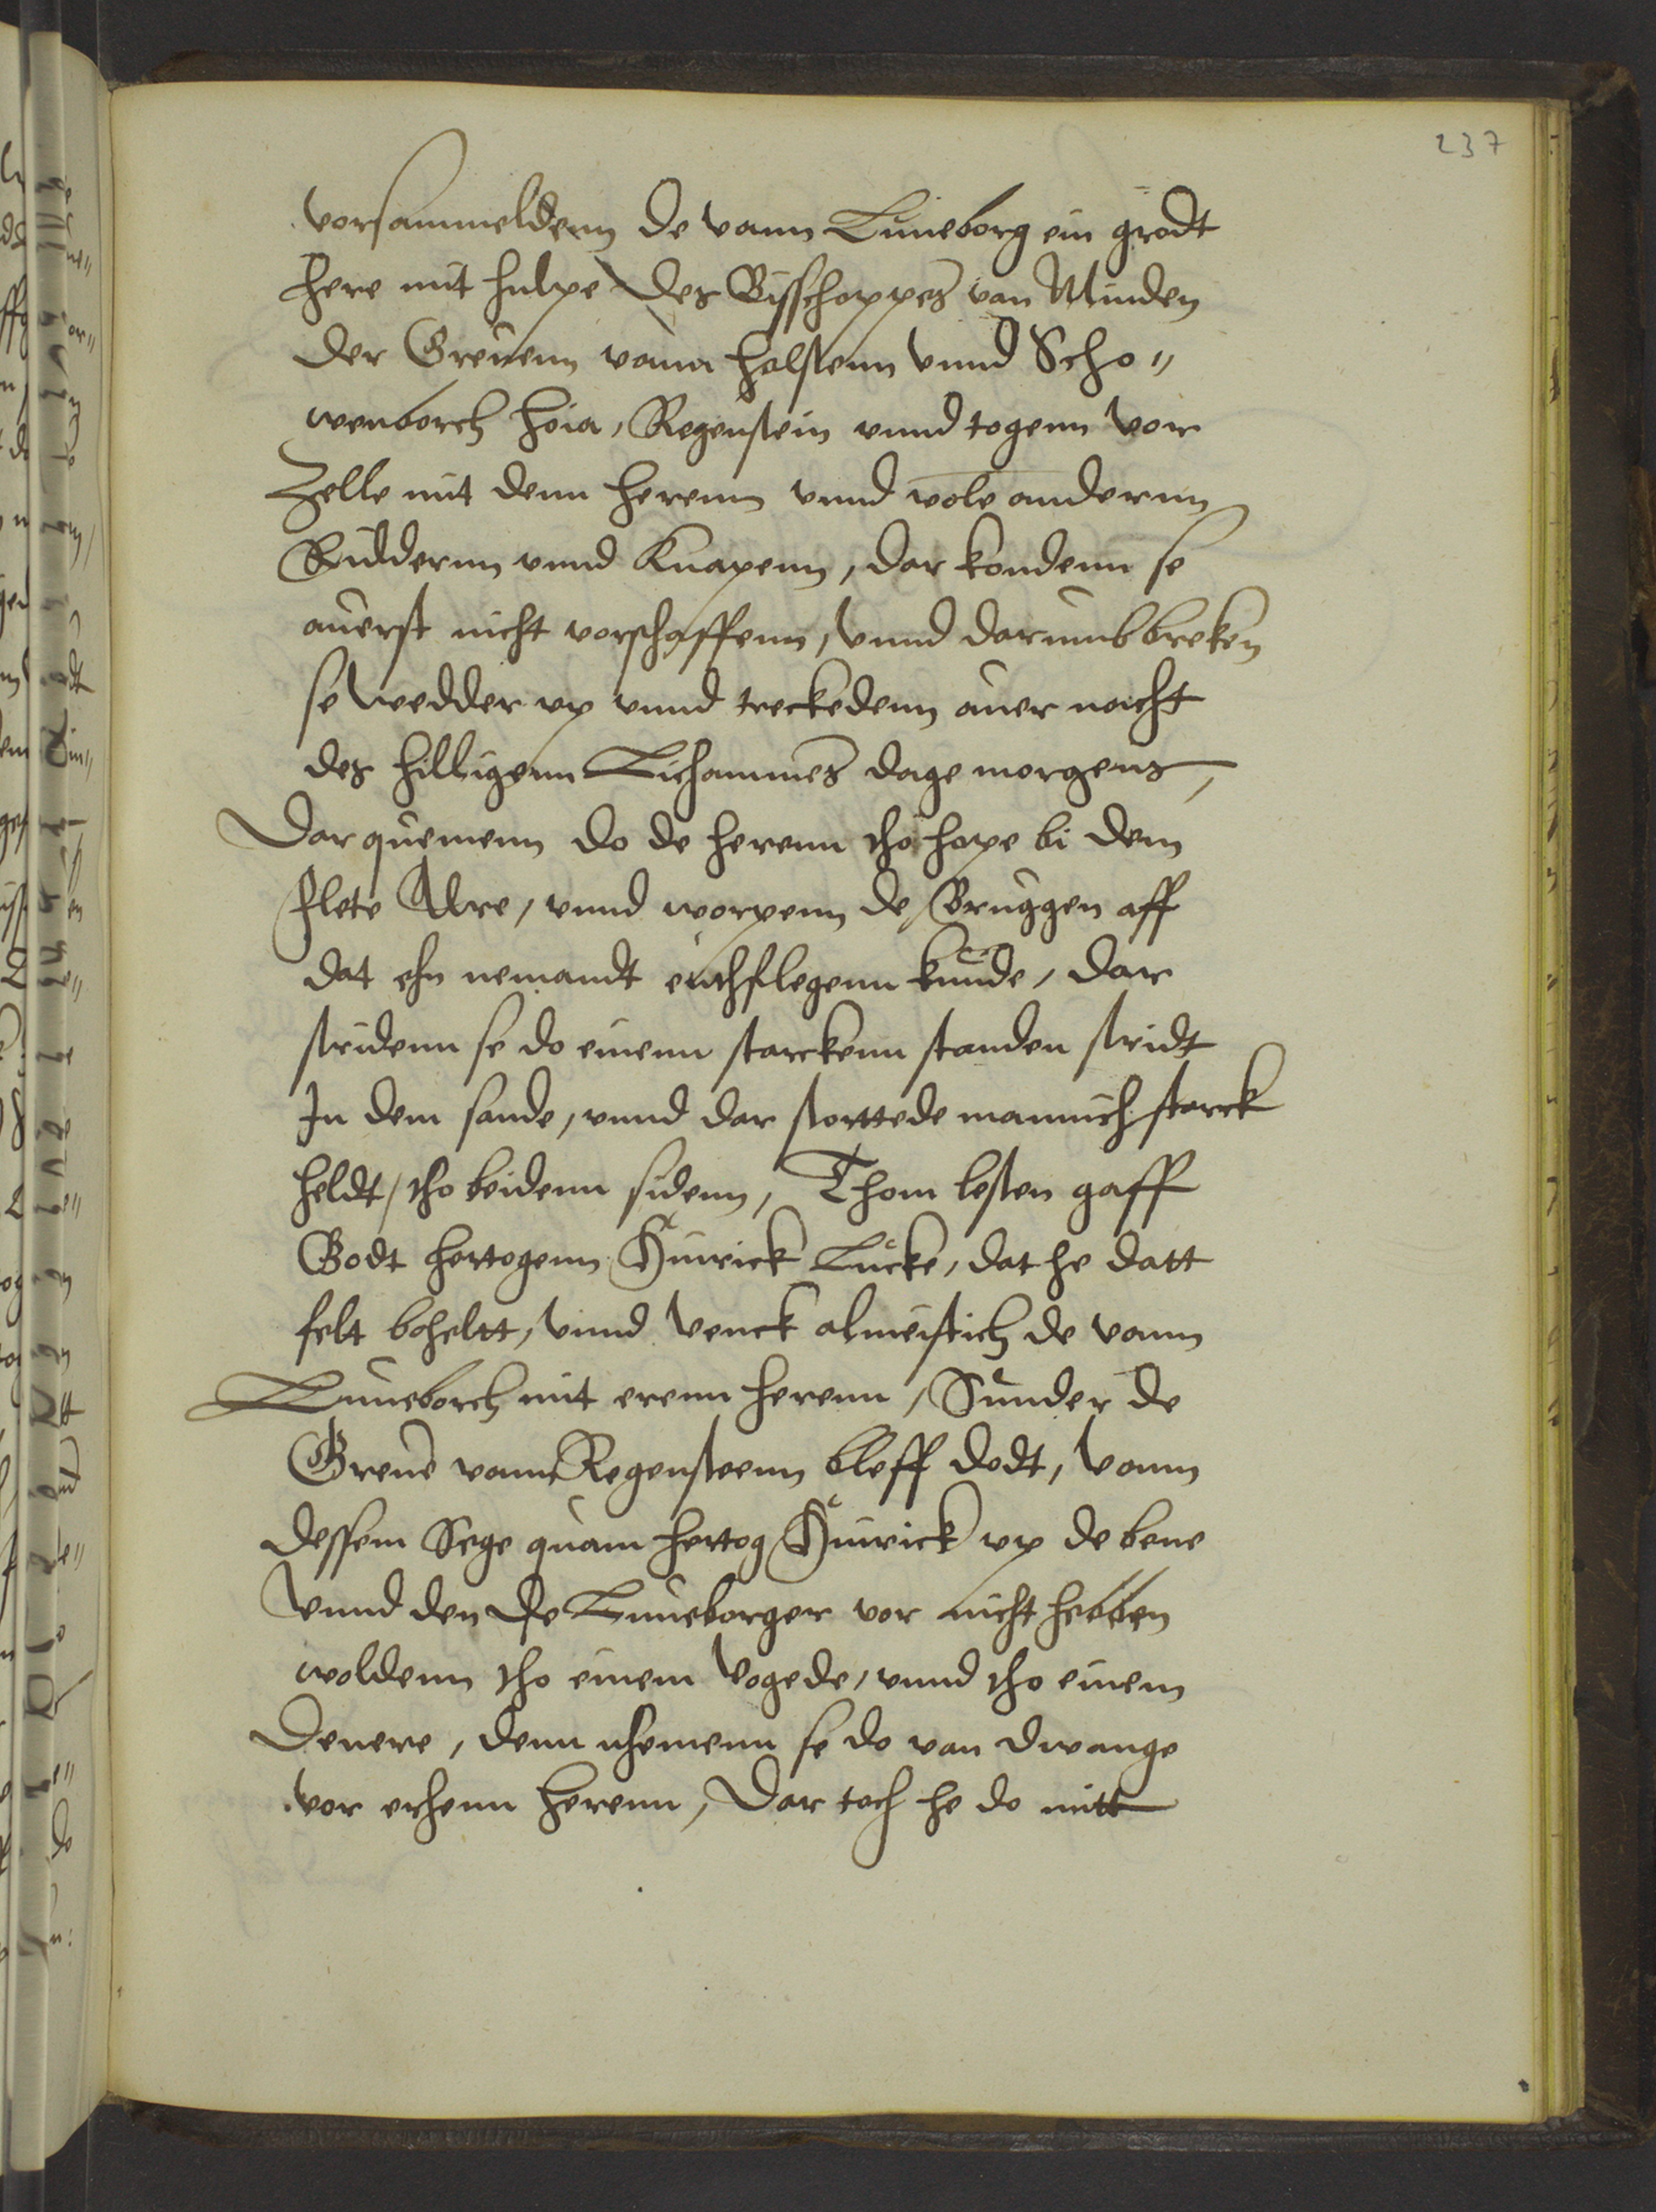 237
vorsammeldenn de vann Luneborg ein grodt
here mit hulpe des Bisschoppes van Minden
der Grevenn vann holstenn vnnd Scho„
wenborch hoia, Regenstein vnnd togenn vor
Zelle mit denn herenn vnnd vole anderenn
Ridderenn vnnd Knapenn, dar kondenn se
auerst nicht vorschaffenn, vnnd darumb breken
se wedder vp vnnd treckedenn auer nacht
des hilligenn Lichammes dage morgens,
Dar quemenn do de herenn tho hope bi dem
flete Alre, vnnd worpenn de Bruggen aff
dat ehn nemandt enthflegenn kunde, dar
stridenn se do einenn starckenn standen stridt
In dem sande, vnnd dar stortede mannich starck
heldt, tho beidenn sidenn, Thom lesten gaff
Godt hertogenn Hinrick Lucke, dat he datt
felt beheltt, vnnd venck almeistich de vann
Luneborch mit erenn herenn, Sunder de
Greue vann Regensteenn bleff dodt, vann
dessem Sege quam hertog Hinrick vp de bene
vnnd den de Luneborger vor nicht hebben
woldenn tho einem vogede, vnnd tho einem
Denere, denn nhemenn se do van dwange
vor erhenn herenn, Dar toch he do mitt